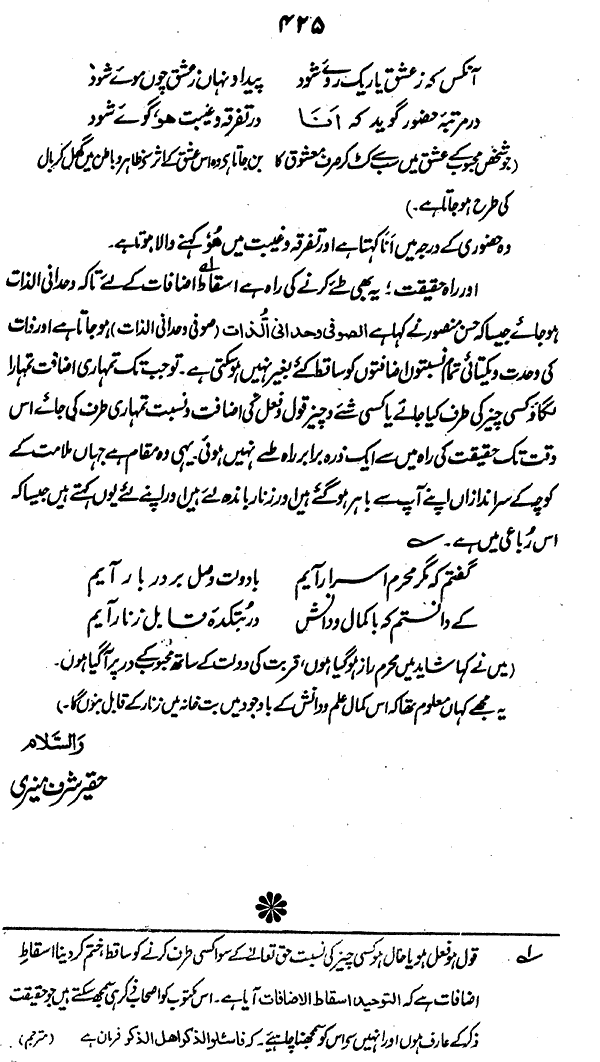 ۴۲۵
آنکس کہ ز عشق یار یک روئے شود پیدا و نہاں ز عشق چوں موئے شود
در مرتبۂ حضور گوید کہ اَنَا در تفرقہ و غیبت ھُو گوئے شود
(جو شخص محبوب کے عشق میں سب سے کٹ کر صرف معشوق کا بن جاتا ہے وہ اس عشق کے اثر سے ظاہر و باطن میں گھل کر بال
کی طرح ہو جاتا ہے۔)
وہ حضوری کے درجہ میں اَنَا کہتا ہے اور تفرقہ و غیبت میں ھُوَ کہنے والا ہوتا ہے۔
اور راہ حقیقت؛ یہ بھی طے کرنے کی راہ ہے اسقاطِ لہ اضافات کے لئے تاکہ وحدانی الذات
ہو جائے جیسا کہ حسن منصور نے کہا ہے الصوفی وحدانی الذات (صوفی وحدانی الذات) ہو جاتا ہے اور ذات
کی وحدت و یکتائی تمام نسبتوں اضافتوں کو ساقط کئے بغیر نہیں ہو سکتی ہے۔ تو جب تک تمہاری اضافت تمہارا
لگاؤ کسی چیز کی طرف کیا جائے یا کسی شئے و چیز قول و فعل کی اضافت و نسبت تمہاری طرف کی جائے اس
وقت تک حقیقت کی راہ میں سے ایک ذرہ برابر راہ طے نہیں ہوئی۔ یہی وہ مقام ہے جہاں ملامت کے
کوچے کے سر اندازاں اپنے آپ سے باہر ہو گئے ہیں اور زنار باندھ لئے ہیں اور اپنے لئے یوں کہتے ہیں جیسا کہ
اس رُباعی میں ہے۔ ؎
گفتم کہ مگر محرم اسرار آیم با دولت وصل بر در یار آیم
کے دانستم کہ با کمال و دانش در بتکدہ قابل زنار آیم
(میں نے کہا شاید میں محرم راز ہو گیا ہوں، قربت کی دولت کے ساتھ محبوب کے در پر آگیا ہوں۔
یہ مجھے کہاں معلوم تھا کہ اس کمال علم و دانش کے باوجود میں بت خانہ میں زنار کے قابل بنوں گا۔)
والسّلام
حقیر شرف منیری
لہ قول ہو فعل ہو یا حال ہو کسی چیز کی نسبت حق تعالےٰ کے سوا کسی طرف کرنے کو ساقط، ختم کر دینا اسقاطِ
اضافات ہے کہ التوحید اسقاط الاضافات آیا ہے۔ اس مکتوب کو اصحاب ذکر ہی سمجھ سکتے ہیں جو حقیقت
ذکر کے عارف ہوں اور انہیں سے اس کو سمجھنا چاہیئے۔ کہ فاسئلوا الذکو اھل الذکو فرمان ہے (مترجم)